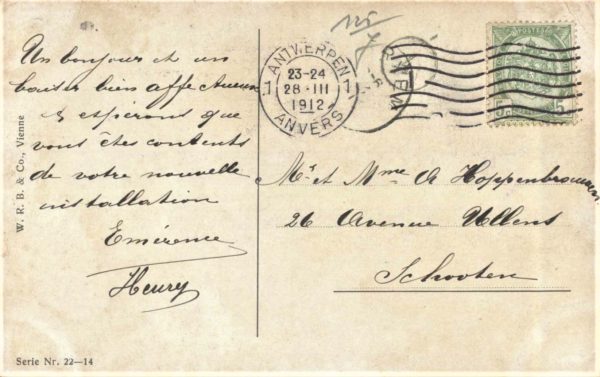 Un bonjour et un
baiser bien affectueux
& espérons que
vous êtes contents
de votre nouvelle
installation
Emérence
Henry
W. R. B. & Co., Vienne
Serie Nr. 22—14
ANTWERPEN
1 1
23-24
28·III
1912
ANVERS
POSTES
5 5
Mr et Mme A Hoppenbrouwers
26 Avenue Ullens
Schooten